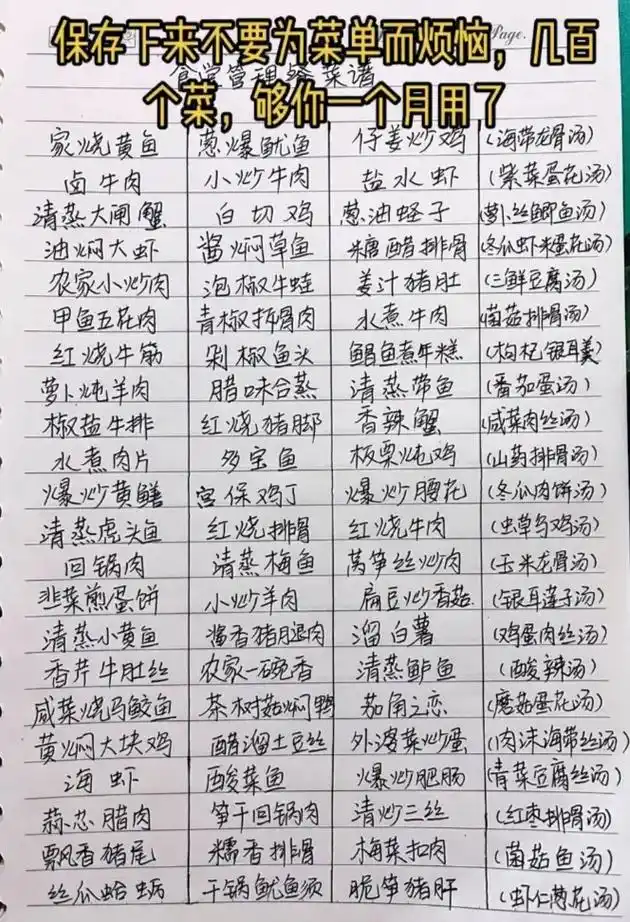 Page.
保存下来不要为菜单而烦恼，几百
个菜，够你一个月用了
食堂管理 菜谱
家烧黄鱼 葱爆鱿鱼 仔姜炒鸡 (海带龙骨汤)
卤牛肉 小炒牛肉 盐水虾 (紫菜蛋花汤)
清蒸大闸蟹 白切鸡 葱油蛏子 (萝卜丝鲫鱼汤)
油焖大虾 酱焖草鱼 糖醋排骨 (冬瓜虾米蛋花汤)
农家小炒肉 泡椒牛蛙 姜汁猪肚 (三鲜豆腐汤)
甲鱼五花肉 青椒拆骨肉 水煮牛肉 (菌菇排骨汤)
红烧牛筋 剁椒鱼头 鲳鱼煮年糕 (枸杞银耳羹)
萝卜炖羊肉 腊味合蒸 清蒸带鱼 (番茄蛋汤)
椒盐牛排 红烧猪脚 香辣蟹 (咸菜肉丝汤)
水煮肉片 多宝鱼 板栗炖鸡 (山药排骨汤)
爆炒黄鳝 宫保鸡丁 爆炒腰花 (冬瓜肉饼汤)
清蒸虎头鱼 红烧排骨 红烧牛肉 (虫草乌鸡汤)
回锅肉 清蒸梅鱼 莴笋丝炒肉 (玉米龙骨汤)
韭菜煎蛋饼 小炒羊肉 扁豆炒香菇 (银耳莲子汤)
清蒸小黄鱼 酱香猪腿肉 溜白薯 (鸡蛋肉丝汤)
香芹牛肚丝 农家一碗香 清蒸鲈鱼 (酸辣汤)
咸菜烧马鲛鱼 茶树菇焖鸭 茄角之恋 (蘑菇蛋花汤)
黄焖大块鸡 醋溜土豆丝 外婆菜炒蛋 (肉沫海带丝汤)
海虾 酸菜鱼 爆炒肥肠 (青菜豆腐丝汤)
蒜芯腊肉 笋干回锅肉 清炒三丝 (红枣排骨汤)
飘香猪尾 糯香排骨 梅菜扣肉 (菌菇鱼汤)
丝瓜蛤蛎 干锅鱿鱼须 脆笋猪肝 (虾仁葱花汤)